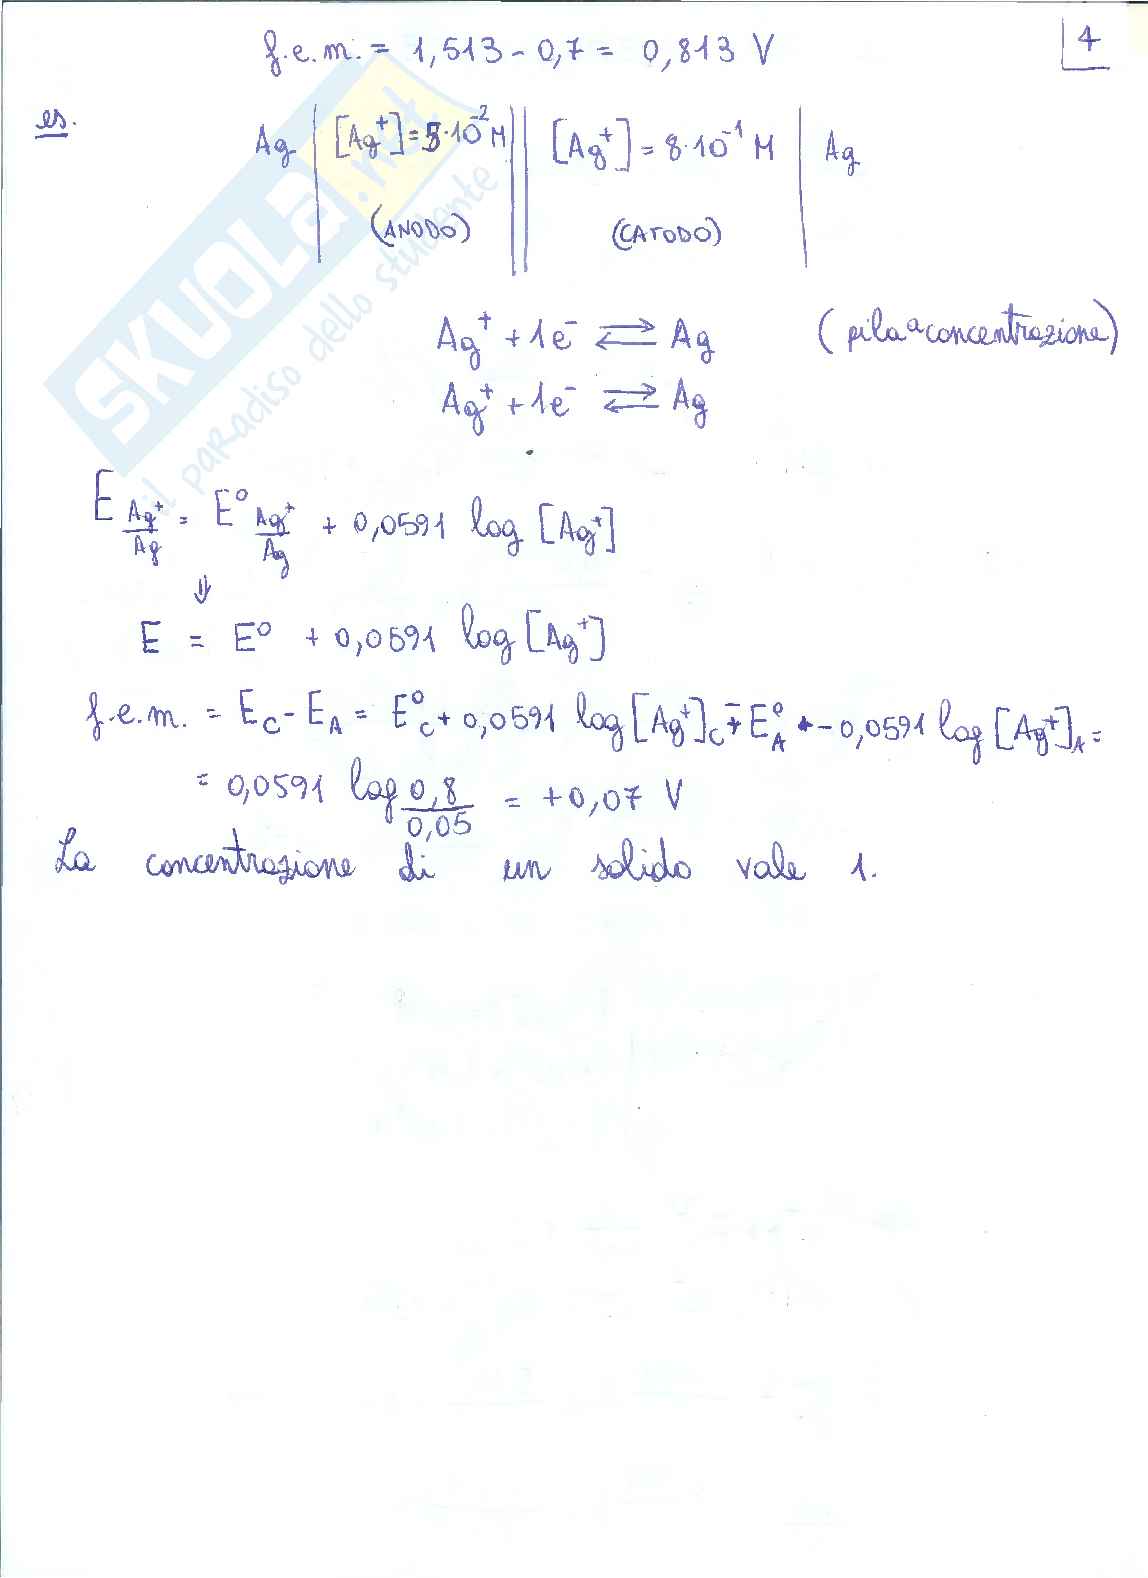 f.e.m. = 1,513 - 0,7 = 0,813 V
4
es.
Ag | [Ag⁺] = 5·10⁻² M || [Ag⁺] = 8·10⁻¹ M | Ag
(ANODO) (CATODO)
Ag⁺ + 1e⁻ ⇄ Ag (pila a concentrazione)
Ag⁺ + 1e⁻ ⇄ Ag
E Ag⁺/Ag = E⁰ Ag⁺/Ag + 0,0591 log [Ag⁺]
⇓
E = E⁰ + 0,0591 log [Ag⁺]
f.e.m. = E_C - E_A = E⁰_C + 0,0591 log [Ag⁺]_C - E⁰_A - 0,0591 log [Ag⁺]_A =
= 0,0591 log 0,8/0,05 = +0,07 V
La concentrazione di un solido vale 1.
SKUOLA.net
il paradiso dello studente